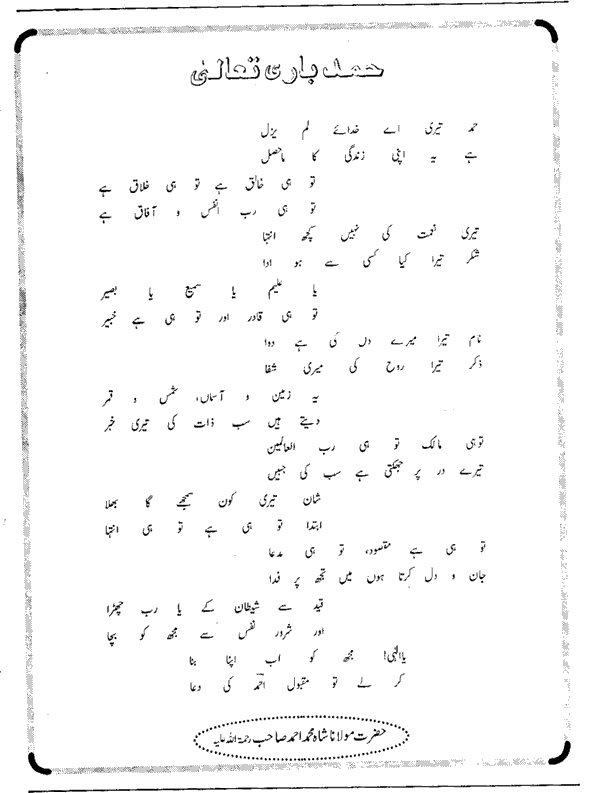 حمد باری تعالیٰ
حمد تیری اے خدائے لم یزل
ہے یہ اپنی زندگی کا ماحصل
تو ہی خالق ہے تو ہی خلاق ہے
تو ہی رب انفس و آفاق ہے
تیری نعمت کی نہیں کچھ انتہا
شکر تیرا کیا کسی سے ہو ادا
یا علیم یا سمیع یا بصیر
تو ہی قادر اور تو ہی ہے خبیر
نام تیرا میرے دل کی ہے دوا
ذکر تیرا روح کی میری شفا
یہ زمین و آسماں، شمس و قمر
دیتے ہیں سب ذات کی تیری خبر
توہی مالک تو ہی رب العالمین
تیرے در پر جھکتی ہے سب کی جبیں
شان تیری کون سمجھے گا بھلا
ابتدا تو ہی ہے تو ہی انتہا
تو ہی ہے مقصود، تو ہی مدعا
جان و دل کرتا ہوں میں تجھ پر فدا
قید سے شیطان کے یا رب چھڑا
اور شرور نفس سے مجھ کو بچا
یاالٰہی! مجھ کو اب اپنا بنا
کر لے تو مقبول احمد کی دعا
حضرت مولانا شاہ محمد احمد صاحب رحمۃ اللہ علیہ